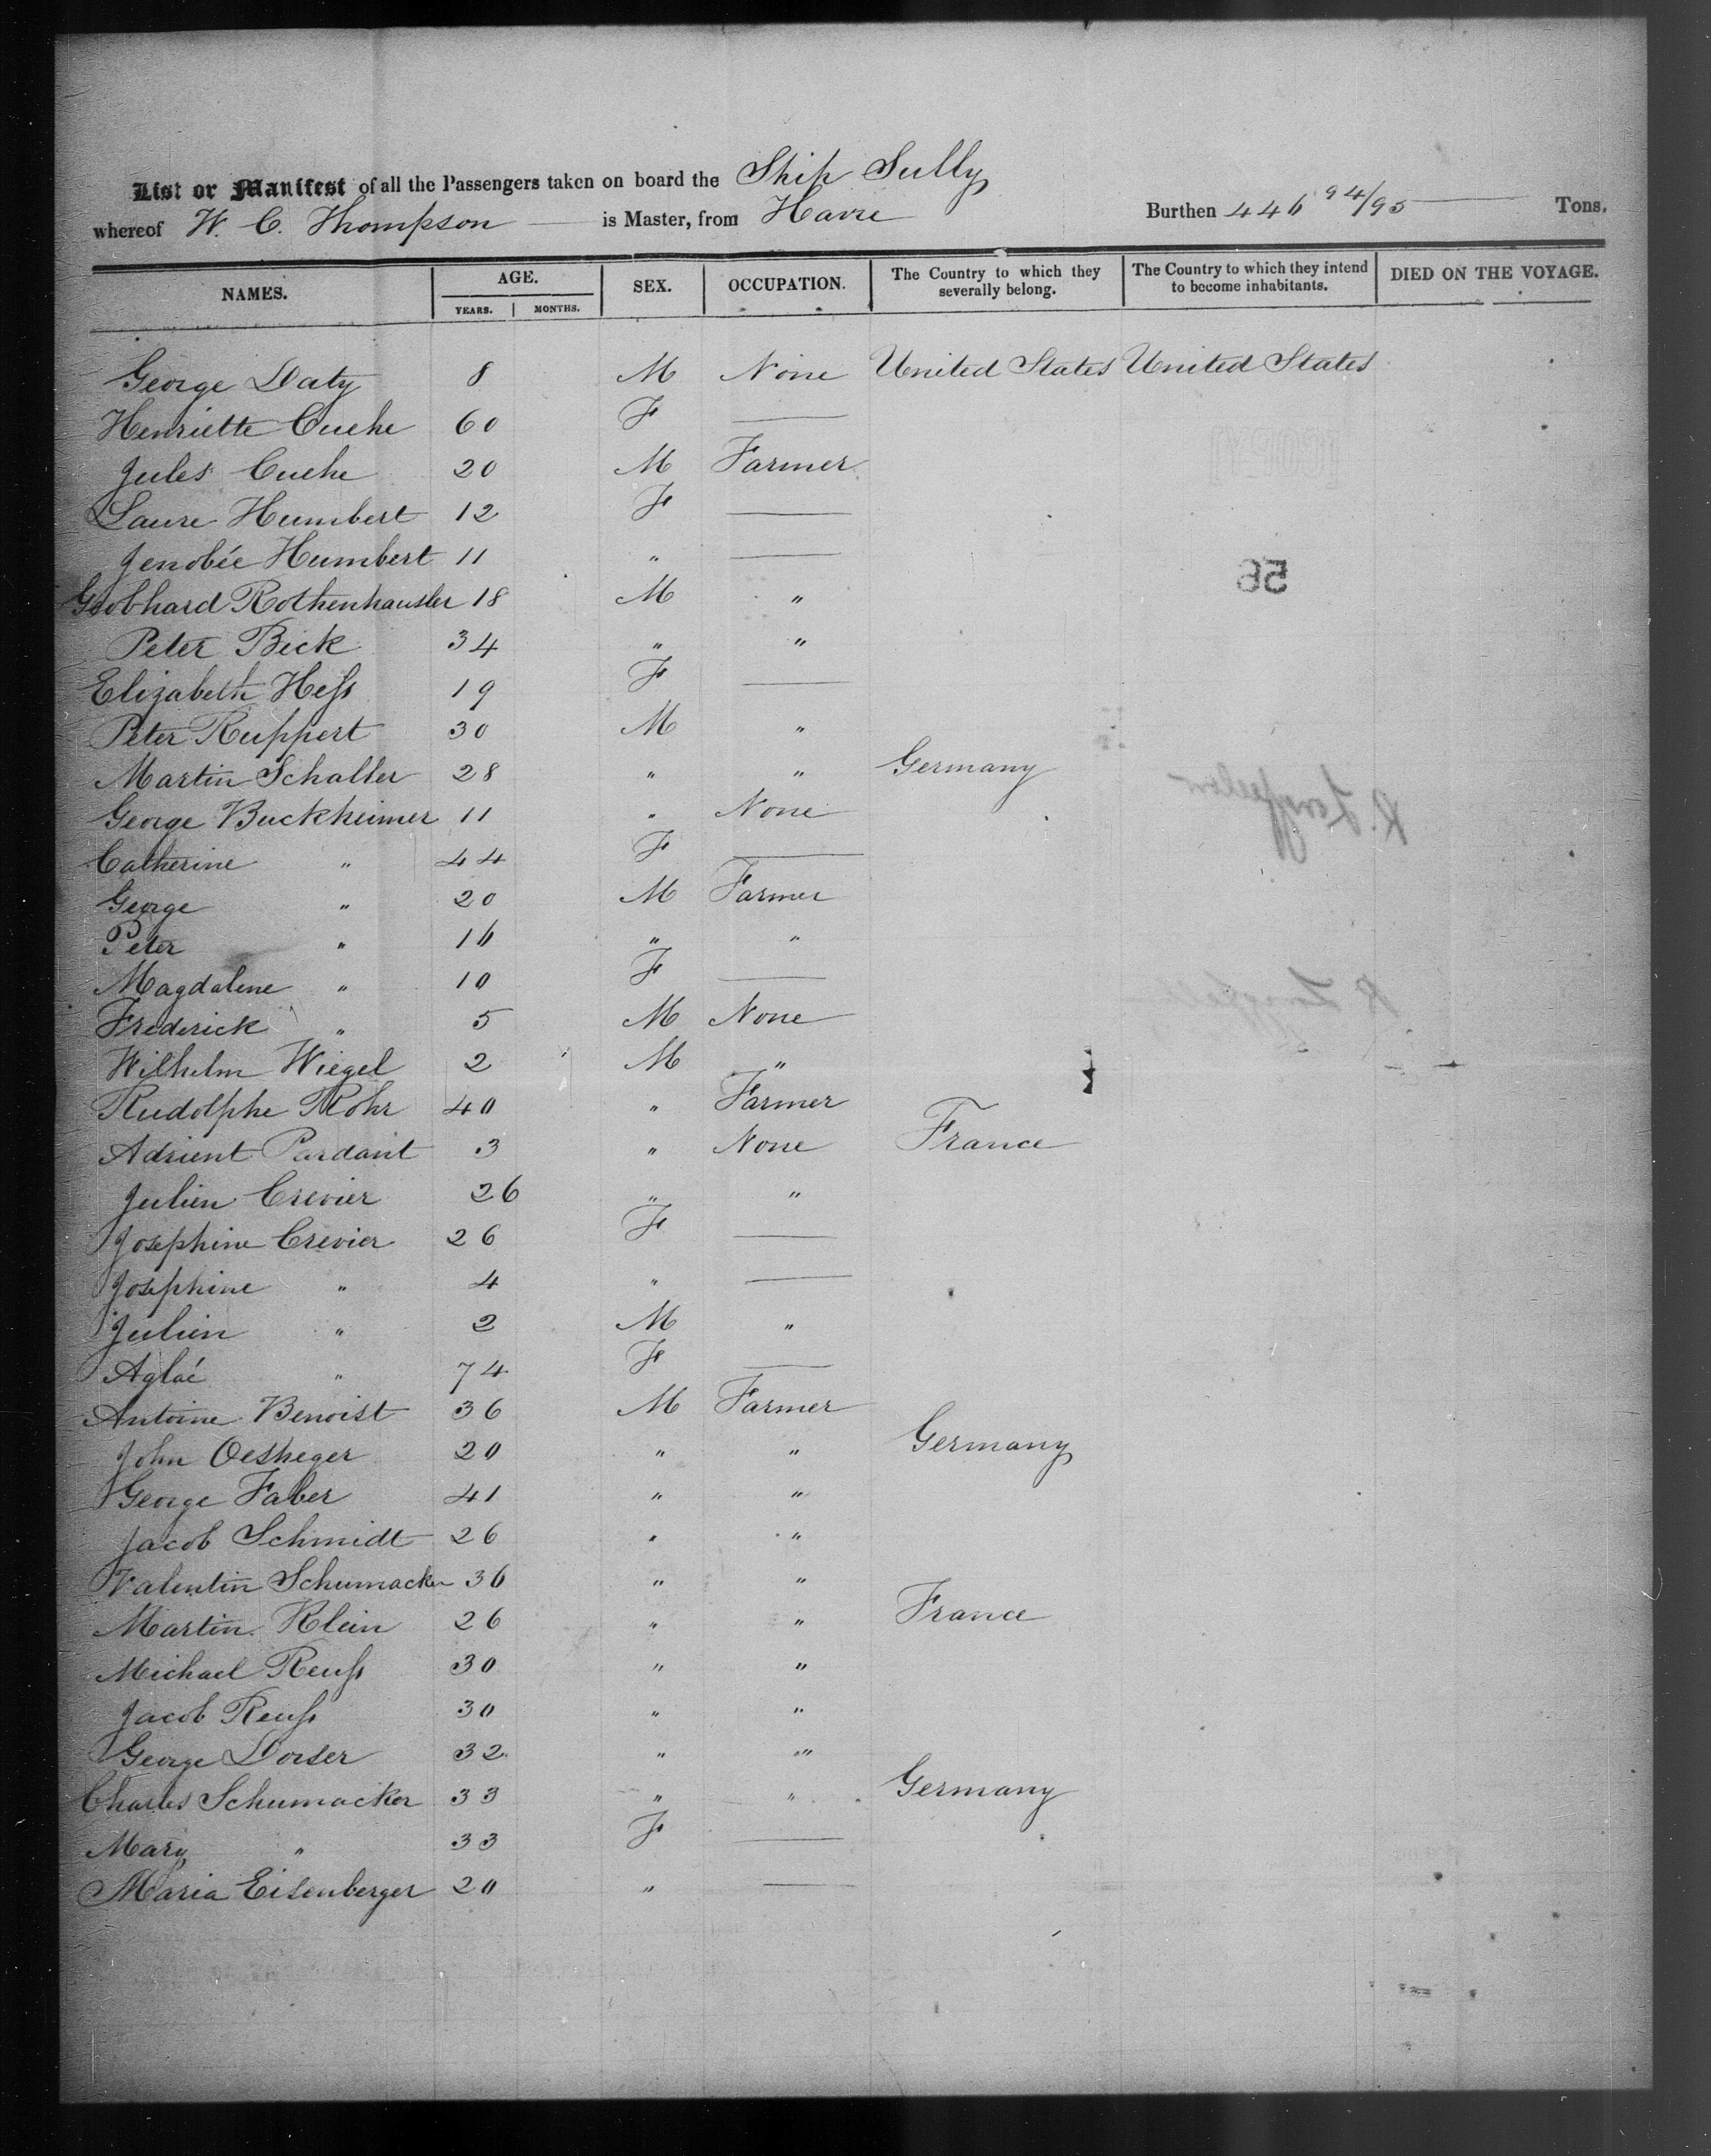 List or Manifest of all the Passengers taken on board the Ship Sully
whereof W. C. Thompson is Master, from Havre Burthen 446 94/95 Tons.
NAMES. AGE. SEX. OCCUPATION. The Country to which they severally belong. The Country to which they intend to become inhabitants. DIED ON THE VOYAGE.
YEARS. MONTHS.
George Daty 8 M None United States United States
Henriette Cuche 60 F —
Jules Cuche 20 M Farmer
Laure Humbert 12 F —
Jenobée Humbert 11 " —
Rothenhausler 18 M "
Peter Bick 34 " "
Elizabeth Hefs 19 F —
Peter Ruppert 30 M "
Martin Schaller 28 " " Germany
George Buckheimer 11 " None
Catherine " 44 F —
George " 20 M Farmer
Peter " 16 " "
Magdalene " 10 F —
Frederick " 5 M None
Wilhelm Wiegel 2 M "
Rudolphe Rohr 40 " Farmer
Adrient Pardant 3 " None France
Julien Crevier 26 " "
Josephine Crevier 26 F —
Josephine " 4 " —
Julien " 2 M "
Aglaé " 74 F —
Antoine Benoist 36 M Farmer
John Oesheger 20 " " Germany
George Faber 41 " "
Jacob Schmidt 26 " "
Valentin Schumacker 36 " "
Martin Klein 26 " " France
Michael Reufs 30 " "
Jacob Reufs 30 " "
George Dorser 32 " "
Charles Schumacker 33 " " Germany
Mary " 33 F —
Maria Eisenberger 20 " —
56